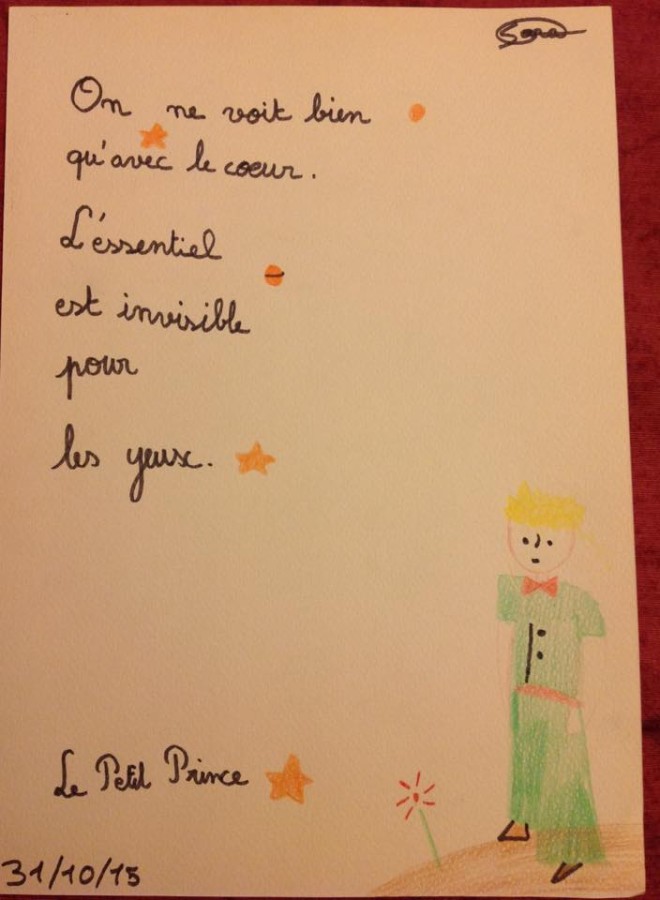 Sara
On ne voit bien
qu'avec le coeur.
L'éssentiel
est invisible
pour
les yeux.
Le Petit Prince
31/10/15